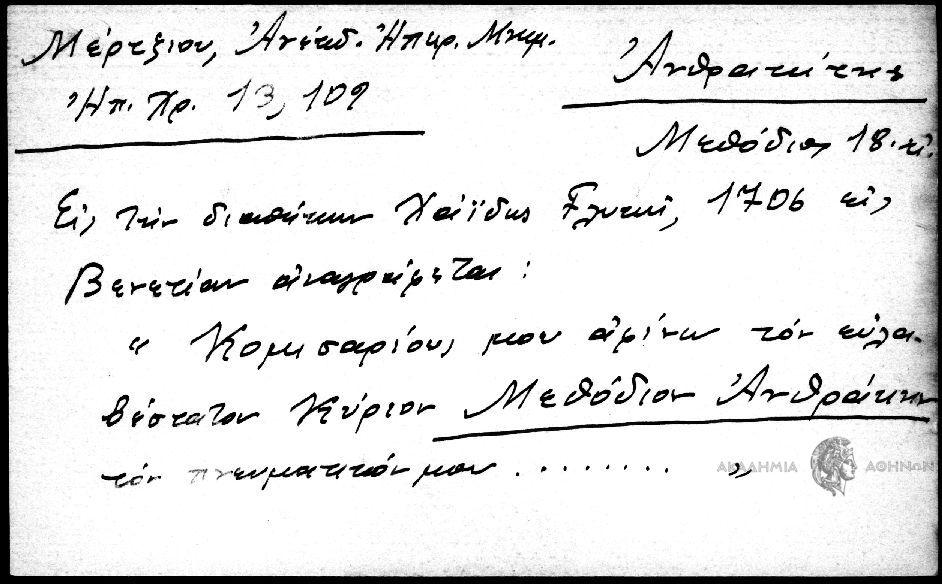 Μέρτζιου, Ἀνέκδ. Ἠπειρ. Μνημ.
Ἠπ. Χρ. 13, 109
Ἀνθρακίτης
Μεθόδιος 18. αἰ.
Εἰς τὴν διαθήκην Χάϊδως Γλυκῆ, 1706 εἰς
Βενετίαν ἀναγράφεται :
" Κομισαρίους μου ἀφίνω τόν εὐλα-
βέστατον Κύριον Μεθόδιον Ἀνθράκην
τόν πνευματικόν μου ........ "
ΑΚΑΔΗΜΙΑ ΑΘΗΝΩΝ